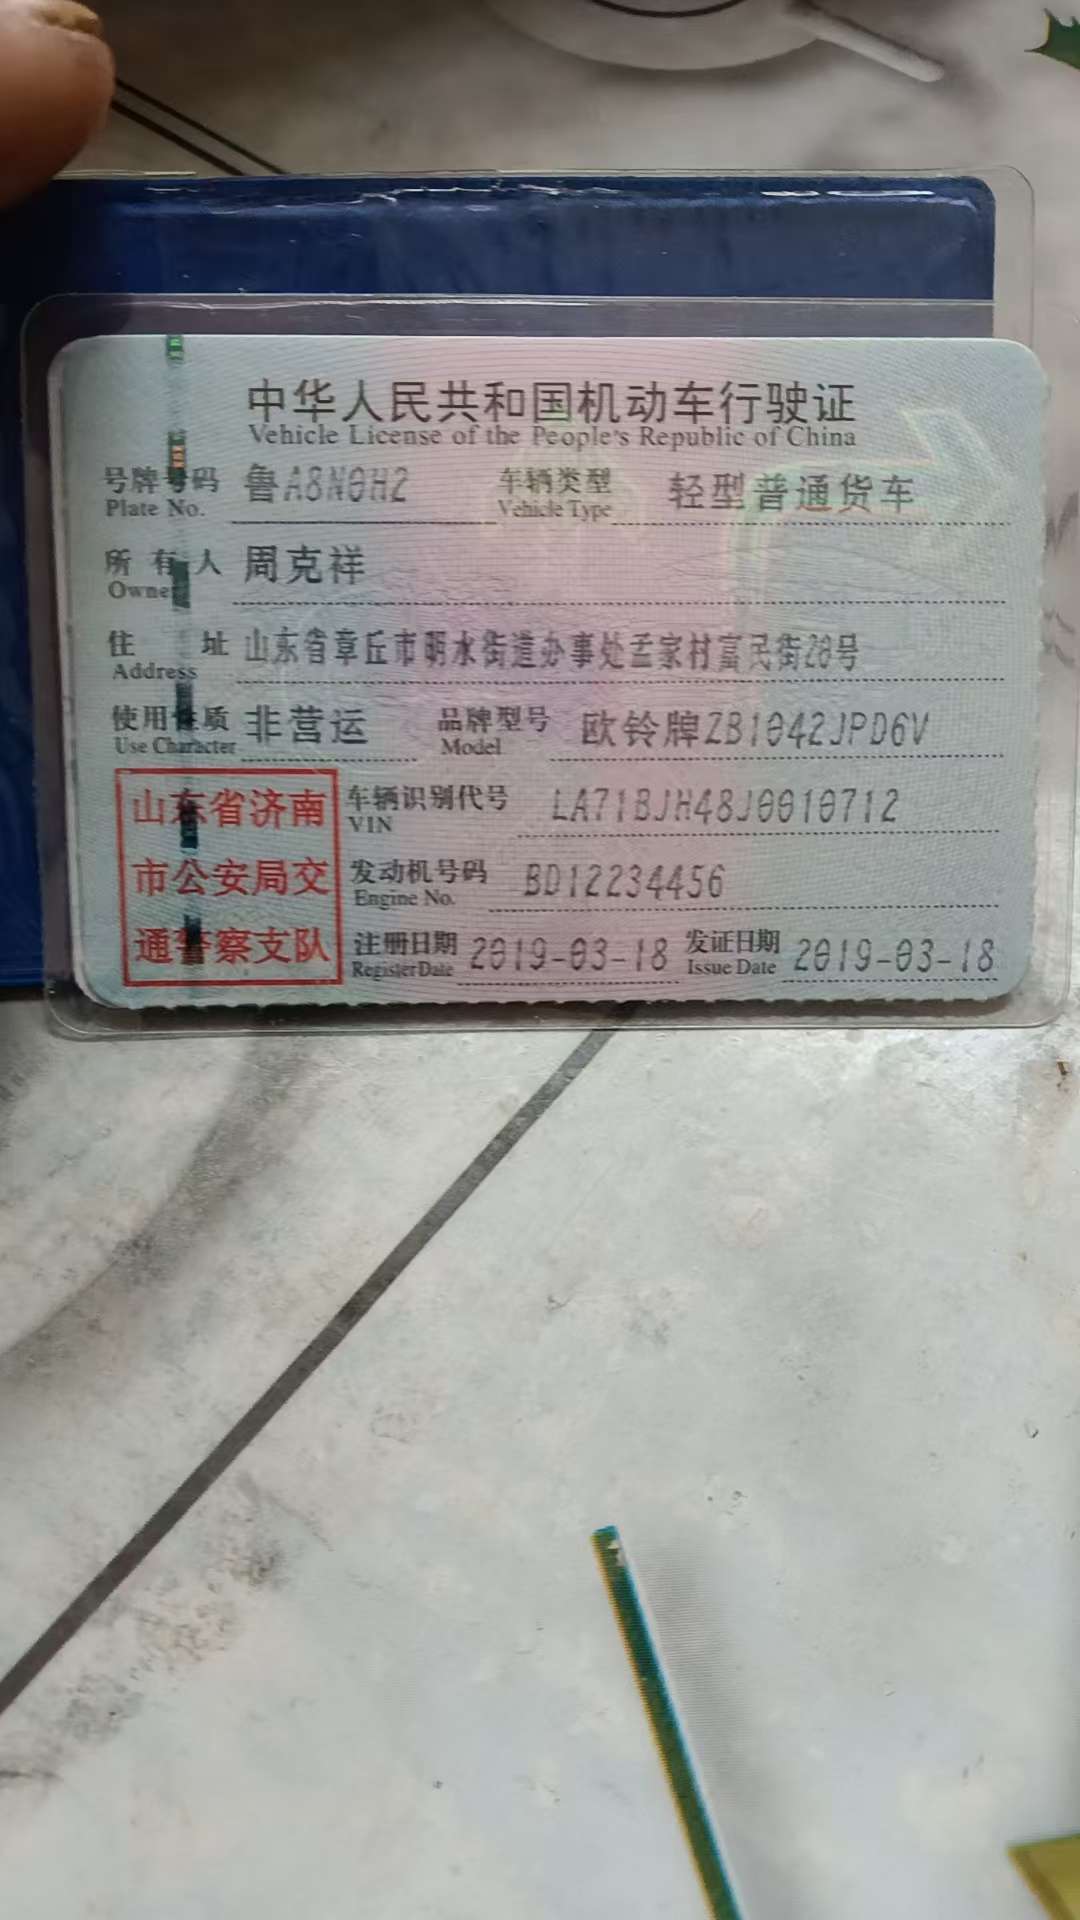 中华人民共和国机动车行驶证
Vehicle License of the People's Republic of China
号牌号码 鲁A8N0H2 车辆类型 轻型普通货车
Plate No. Vehicle Type
所有人 周克祥
Owner
住址 山东省章丘市明水街道办事处孟家村富民街20号
Address
使用性质 非营运 品牌型号 欧铃牌ZB1042JPD6V
Use Character Model
山东省济南
市公安局交
通警察支队
车辆识别代号 LA71BJH48J0010712
VIN
发动机号码 BD12234456
Engine No.
注册日期 2019-03-18 发证日期 2019-03-18
Register Date Issue Date